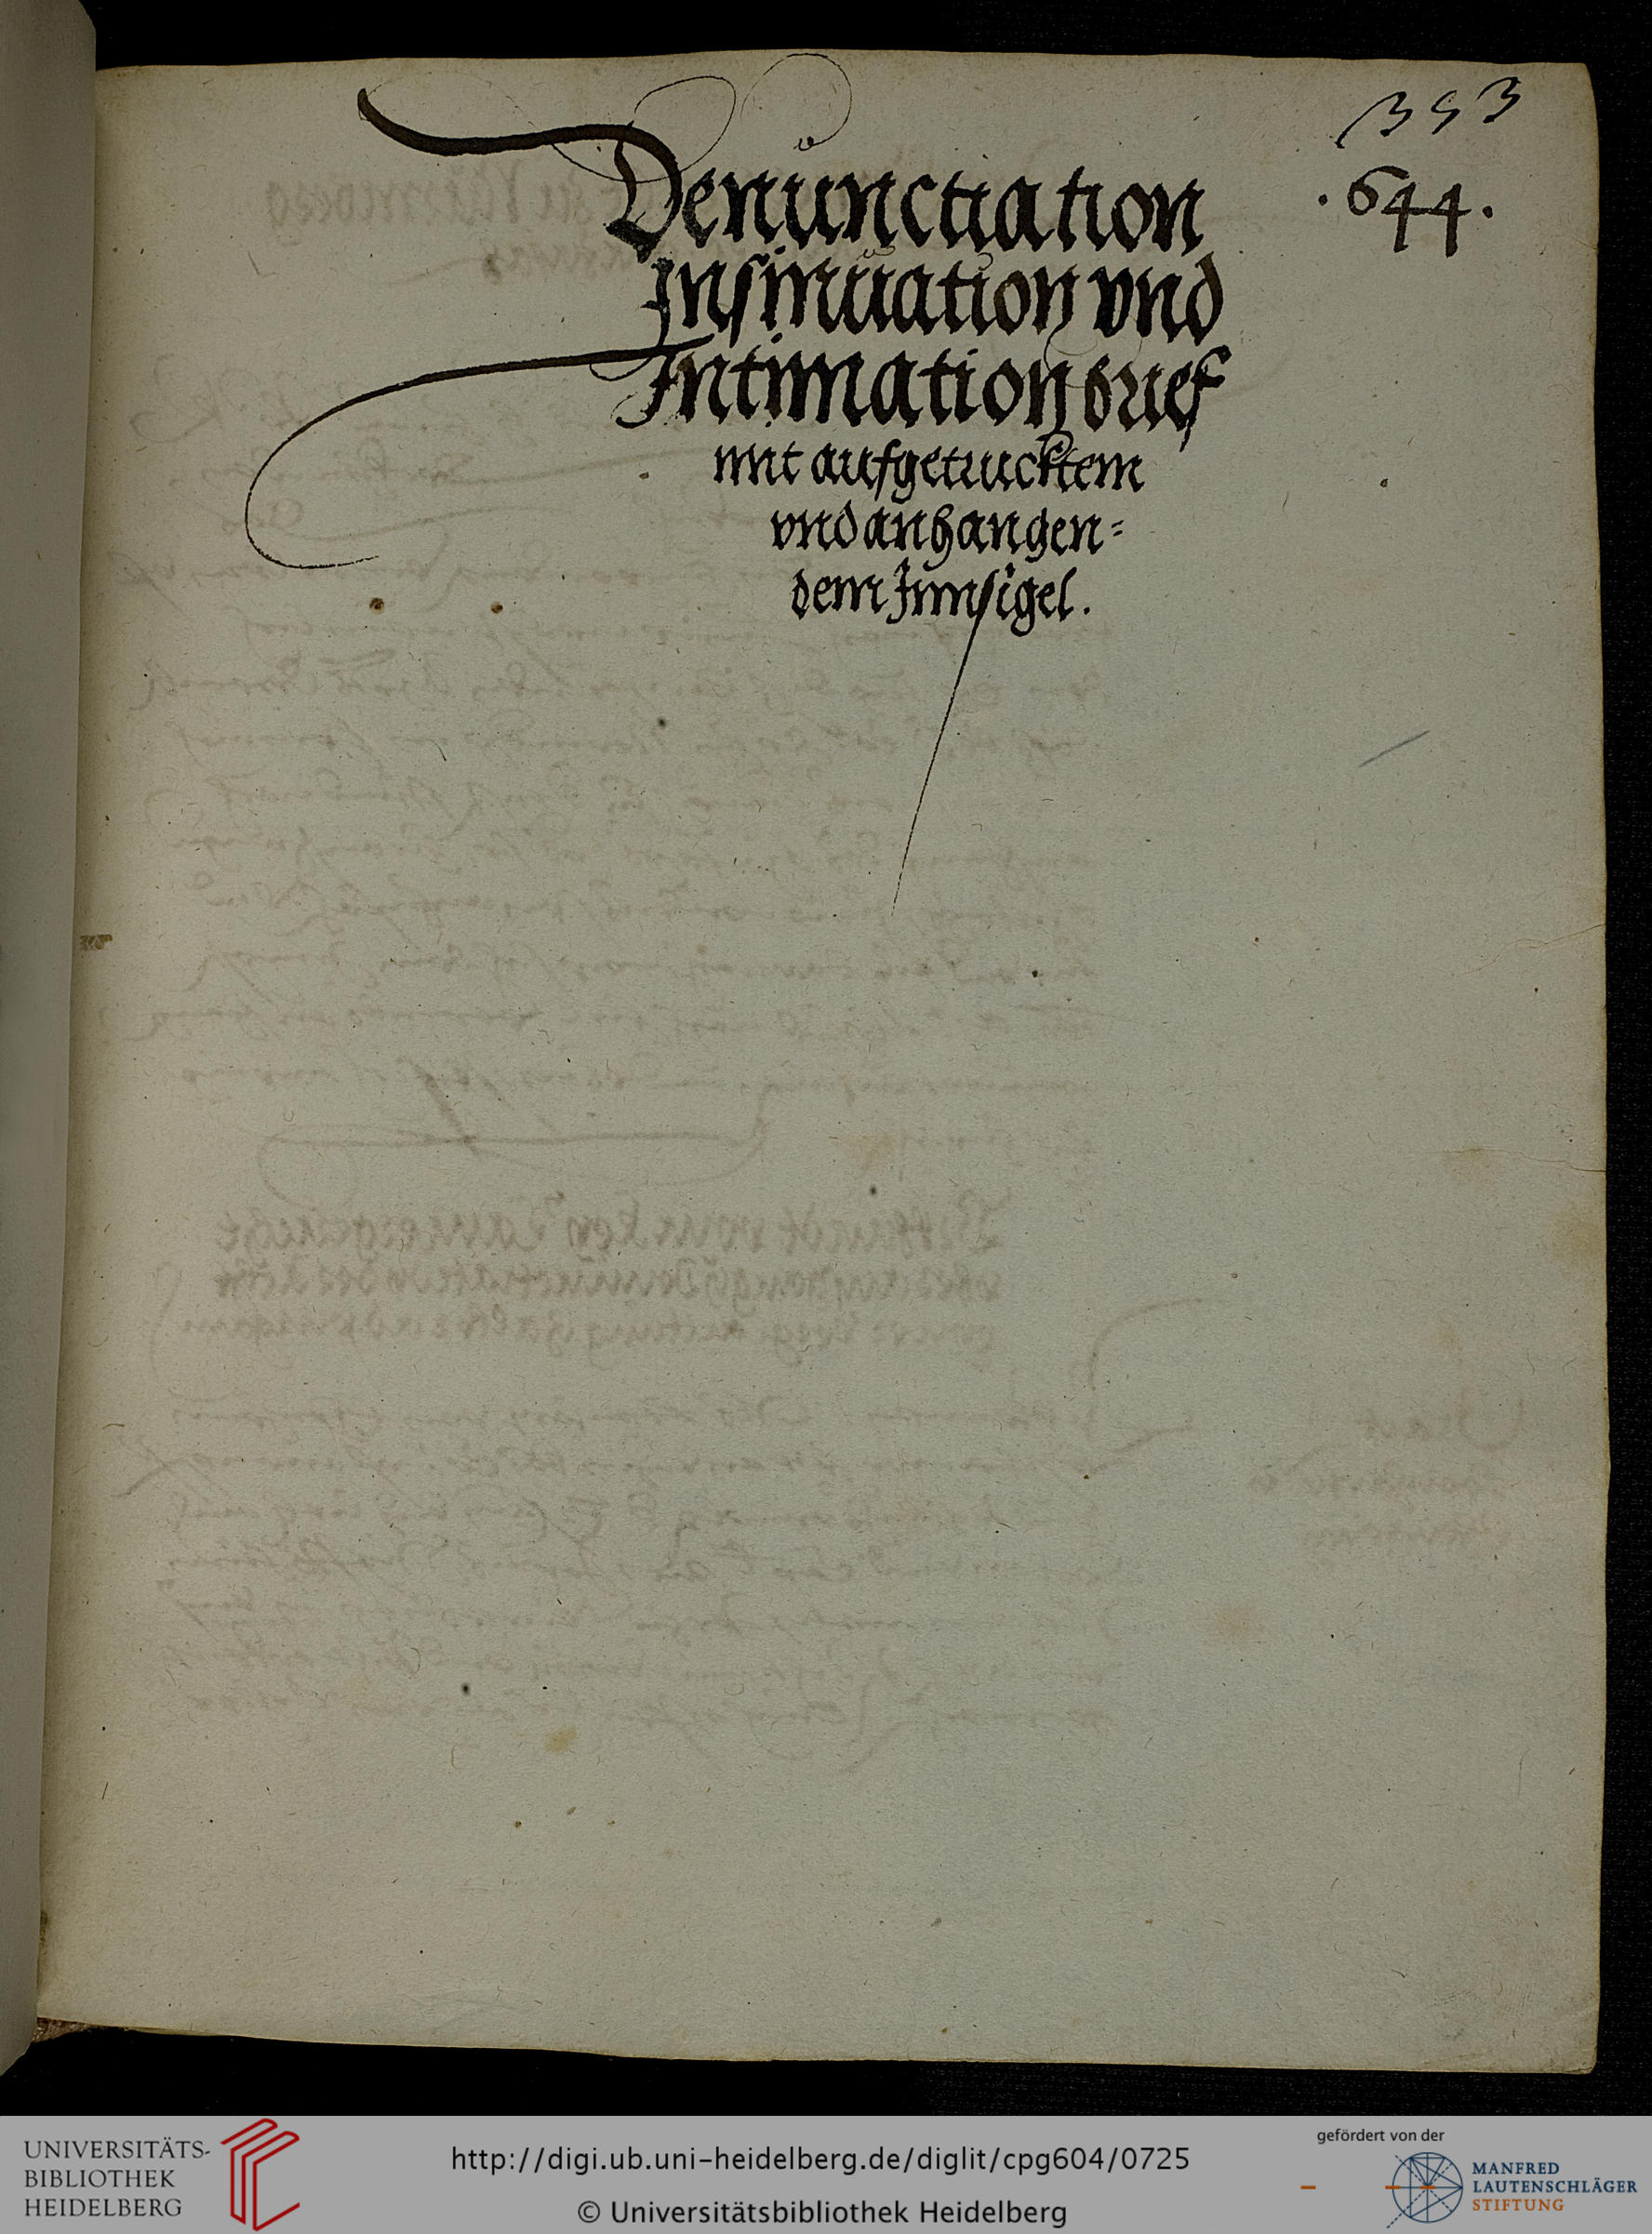 353
.644.
Denunctiation
Insinuation vnd
Intimation brief
mit aufgetrucktem
vnd anhangen=
dem Innsigel.
UNIVERSITÄTS-
BIBLIOTHEK
HEIDELBERG
http://digi.ub.uni-heidelberg.de/diglit/cpg604/0725
© Universitätsbibliothek Heidelberg
gefördert von der
MANFRED
LAUTENSCHLÄGER
STIFTUNG